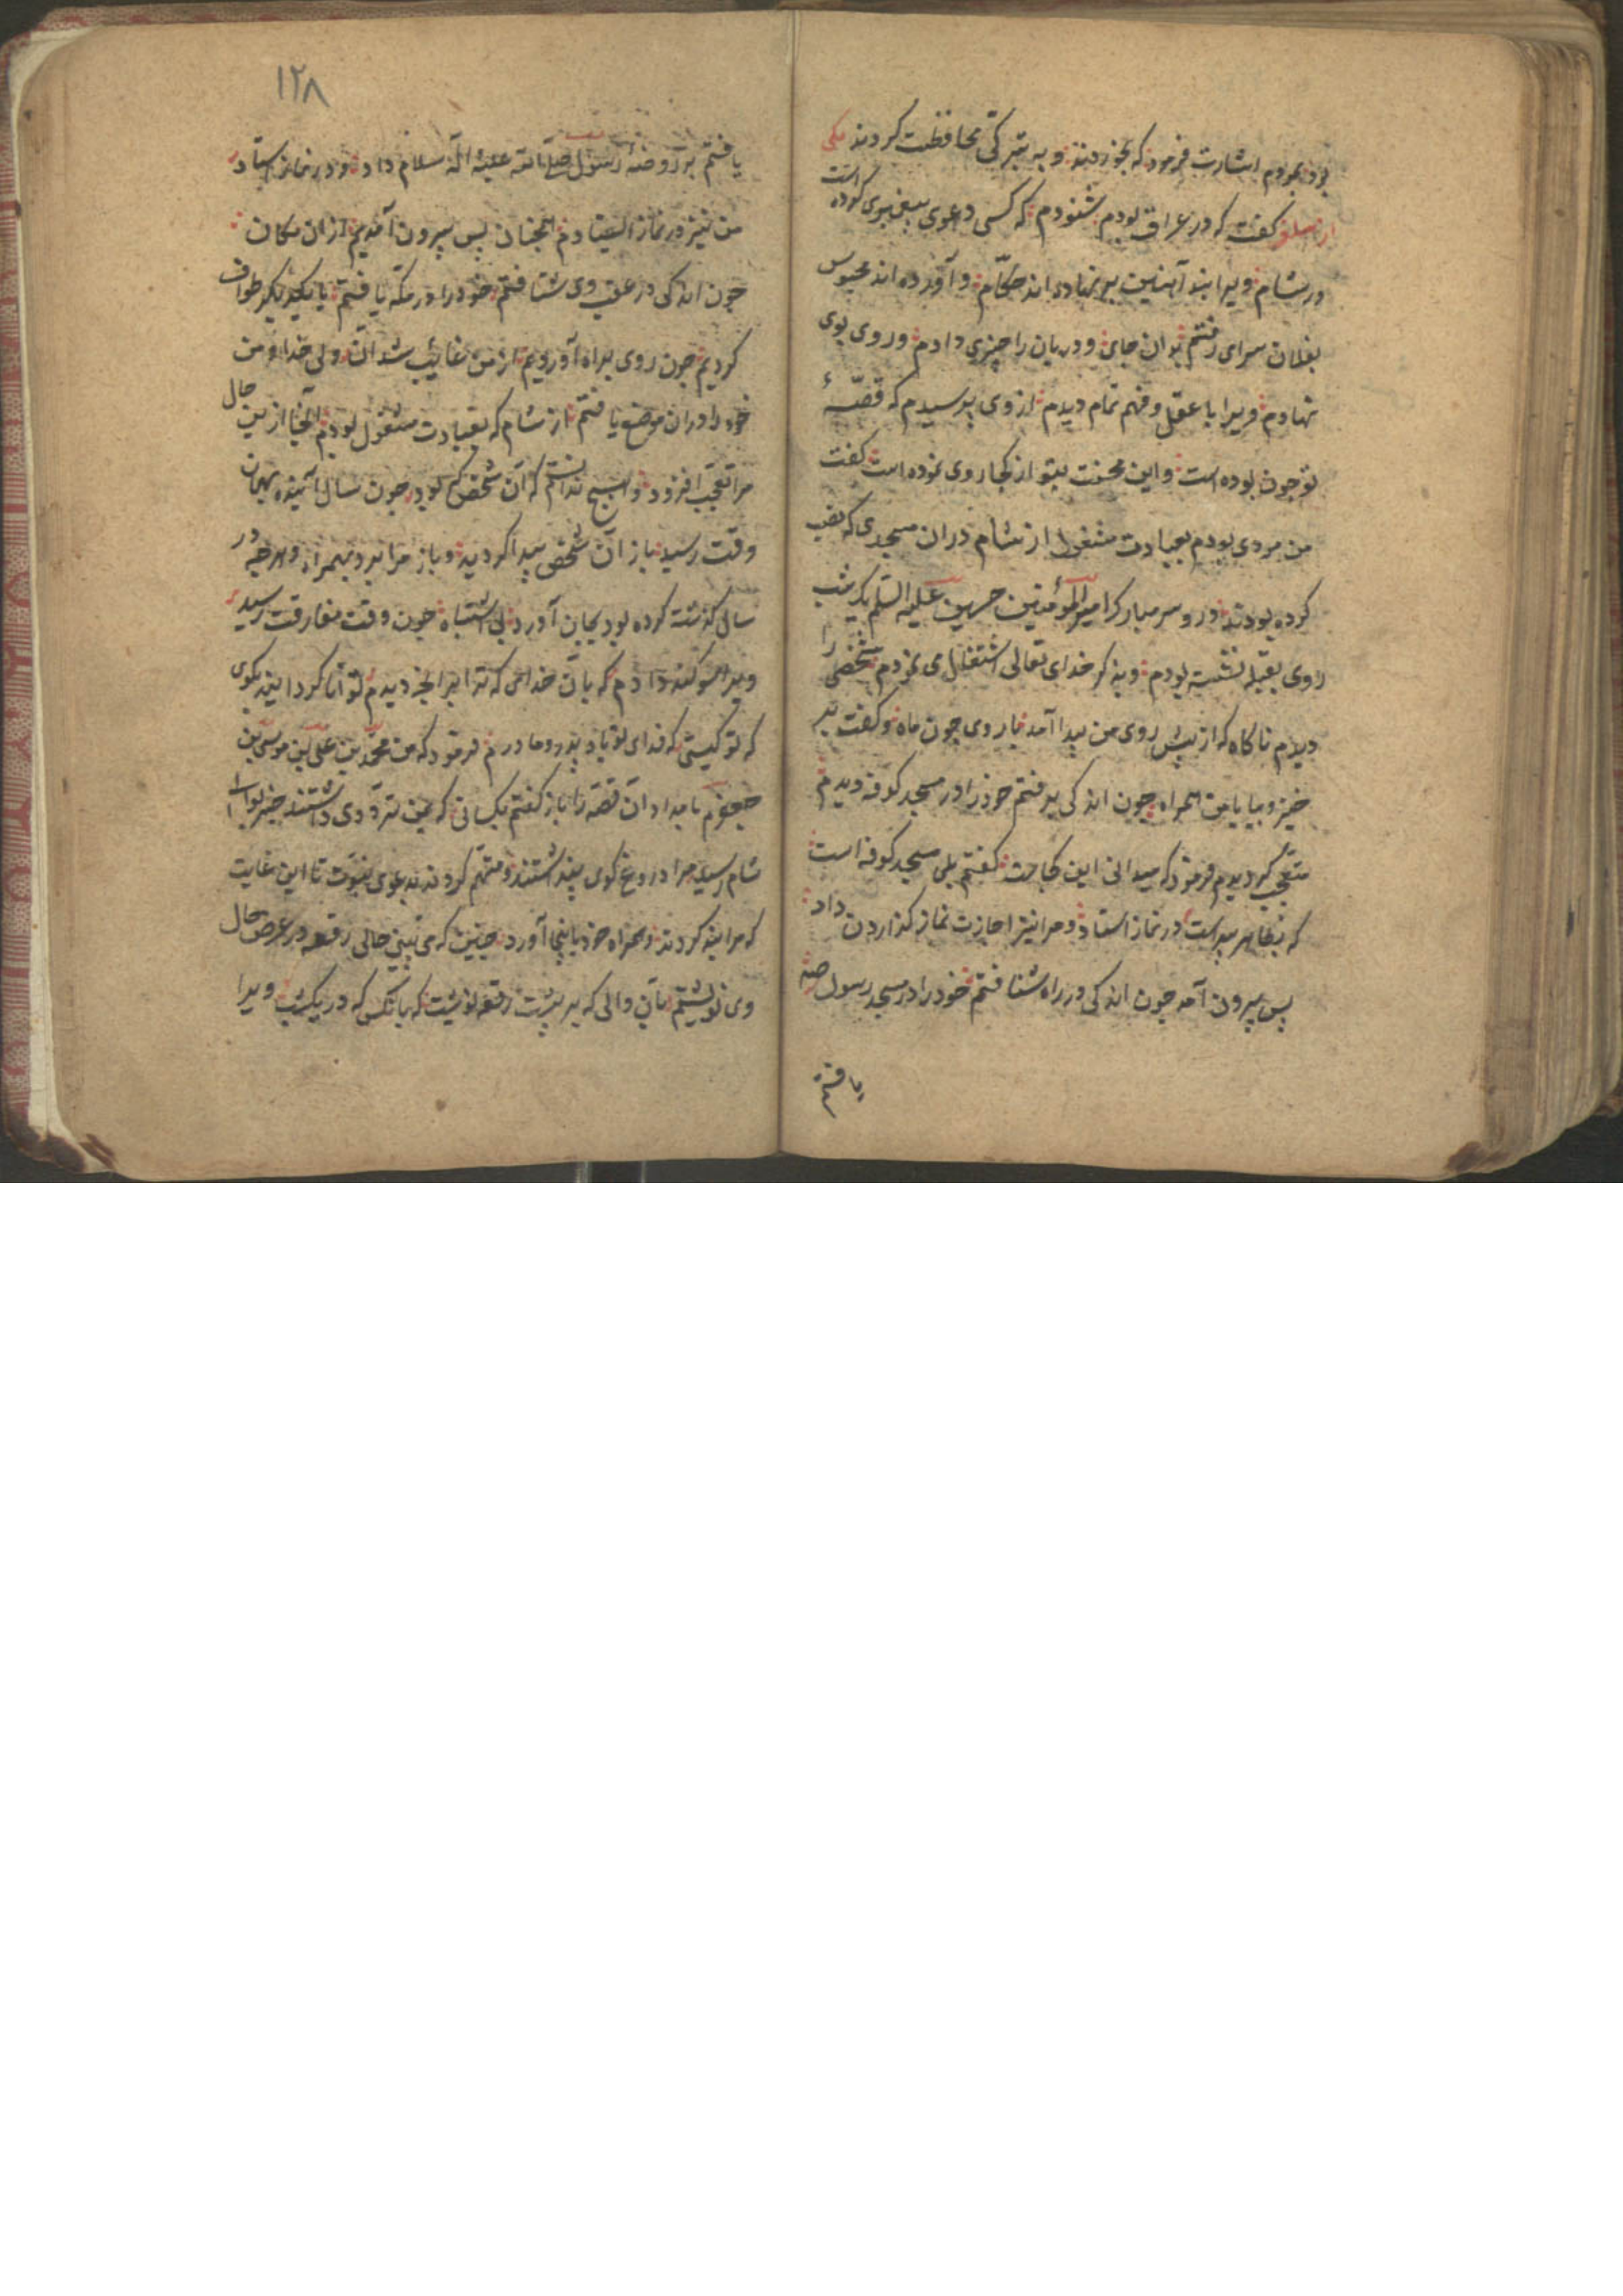 بود بمردم اشارت فرمود که بخوردند و به تبرکی محافظت کردند یکی
از سلف گفت که در عراق بودم شنودم که کسی دعوی پیغمبری کرده است
در شام ویرا بند آهنین بر نهاده اند حکّام و آورده اند محبوس
بفلان سرای رفتم بدان جای و دربان را چیزی دادم و روی بوی
نهادم ویرا با عقل و فهم تمام دیدم از وی پرسیدم که قصّهٔ
تو چون بوده است و این محنت بتو از کجا روی نموده است گفت
من مردی بودم بعبادت مشغول از شام در ان مسجدی که نصب
کرده بودند درو سر مبارک امیرالمؤمنین حسین علیه السلم یک شب
روی بقبله نشسته بودم و بذکر خدای تعالی اشتغال می نمودم شخصی را
دیدم ناکاه که از پیش روی من پیدا آمد با روی چون ماه و گفت بر
خیز و بیا با من همراه چون اندکی برفتم خود را در مسجد کوفه دیدم
متعجّب کردیدم فرمود که میدانی این کجاست گفتم بلی مسجد کوفه است
که بظاهر پیداست در نماز استاد و مرا نیز اجازت نماز گذاردن داد
پس بیرون آمد چون اندکی در راه شتافتم خود را در مسجد رسول صه
یافتم
۱۲۸
یافتم بر روضهٔ رسول صلی الله علیه و آله سلام داد و در نماز استاد
من نیز در نماز استادم همچنان پس بیرون آمدیم از ان مکان
چون اندکی در عقب وی شتافتم خود را در مکّه یافتم با یکدیگر طواف
کردیم چون روی براه آوردیم از من غایب شد آن ولی خدا و من
خود را در ان موضع یافتم از شام که بعبادت مشغول بودم آنجا ازین حال
مرا تعجّب افزود و هیچ ندانستم که آن شخص که بود چون سال آینده بهمان
وقت رسید باز آن شخص پیدا کردید و باز مرا ببرد بهمراه و هرچه در
سال گذشته کرده بود بجای آورد بی اشتباه چون وقت مفارقت رسید
ویرا سوکند دادم که بآن خدائی که ترا بر آنچه دیدم توانا کردانید بگوی
که تو کیستی که فدای تو باد پدر و مادرم فرمود که من محمّد بن علی بن موسی بن
جعفرم بامداد آن قصّه را باز گفتم بکسانی که بمن تردّدی داشتند خبر بوالی
شام رسید مرا دروغ گوی پنداشتند و متهم کردند بدعوی نبوّت تا این غایت
که مرا بند کردند و همراه خود باینجا آورد چنین که می بینی حالی رقعه در عرض حال
وی نوشتم بآن والی که بر پشت رقعه نوشت که بآنکس که در یکشب ویرا